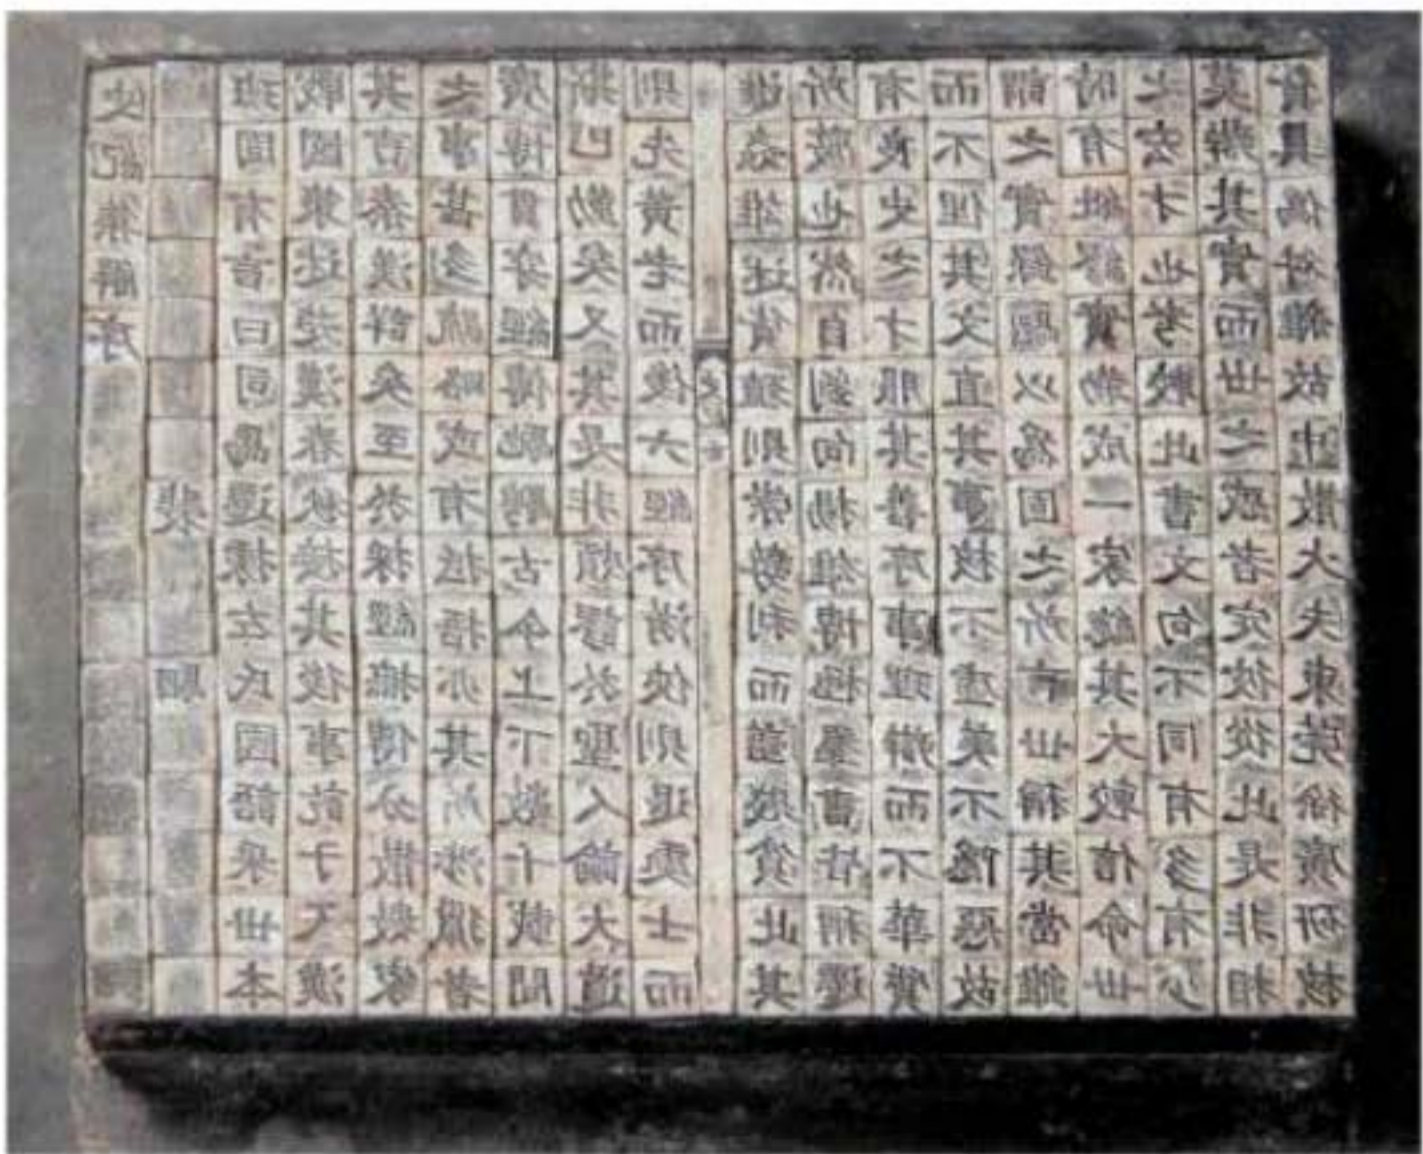 史記集解序
裴駰
班固有言曰司馬遷據左氏國語采世本
戰國策述楚漢春秋接其後事訖于天漢
其言秦漢詳矣至於採經摭傳分散數家
之事甚多疏略或有抵捂亦其所涉獵者
廣博貫穿經傳馳騁古今上下數千載間
斯已勤矣又其是非頗謬於聖人論大道
則先黃老而後六經序游俠則退處士而
進姦雄述貨殖則崇勢利而羞賤貧此其
所蔽也然自劉向揚雄博極羣書皆稱遷
有良史之才服其善序事理辯而不華質
而不俚其文直其事核不虛美不隱惡故
謂之實錄駰以爲固之所言世稱其當雖
時有紕繆實勒成一家總其大較信命世
之宏才也考較此書文句不同有多有少
莫辯其實而世之惑者定彼從此是非相
貿真偽舛雜故中散大夫東莞徐廣研核